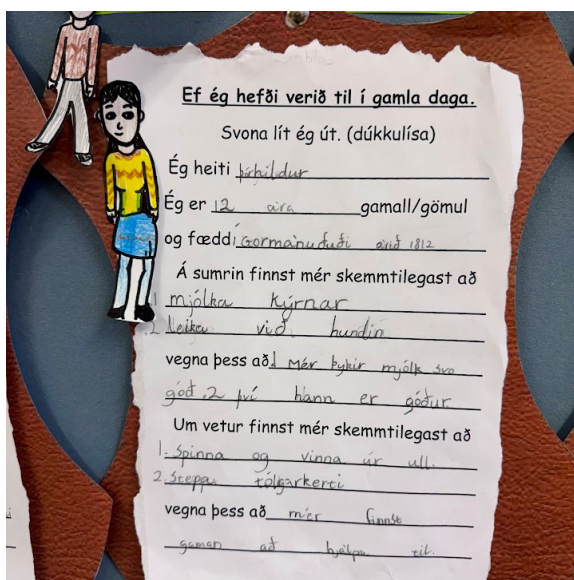 Ef ég hefði verið til í gamla daga.
Svona lít ég út. (dúkkulísa)
Ég heiti Þórhildur
Ég er 12 ára gamall/gömul
og fædd í Gormánuðuði árið 1812
Á sumrin finnst mér skemmtilegast að
1 mjólka kýrnar
2 leika við hundin
vegna þess að 1 Mér þykir mjólk svo
góð .2 því hann er góður
Um vetur finnst mér skemmtilegast að
1. Spinna og vinna úr ull.
2 Steppa tólgarkerti
vegna þess að mér finnst
gaman að hjálpa til.